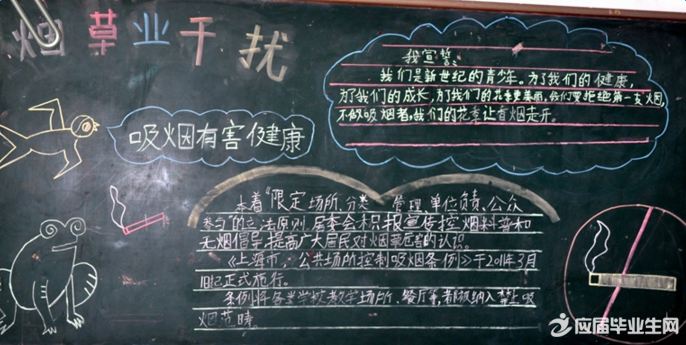 烟草业干扰
我宣誓:
我们是新世纪的青少年。为了我们的健康,
为了我们的成长,为了我们的花季更美丽,我们要拒绝第一支烟,
不做吸烟者,我们的花季让香烟走开。
吸烟有害健康
本着“限定场所、分类管理、单位负责、公众
参与”的立法原则,居委会积报宣传控烟科普和
无烟倡导,提高广大居民对烟草危害的认识。
《上海市,公共场所控制吸烟条例》于2011年3月
1日起正式施行。
条例将各类学校教学场所、餐厅等都被纳入禁止吸
烟范畴。
应届毕业生网